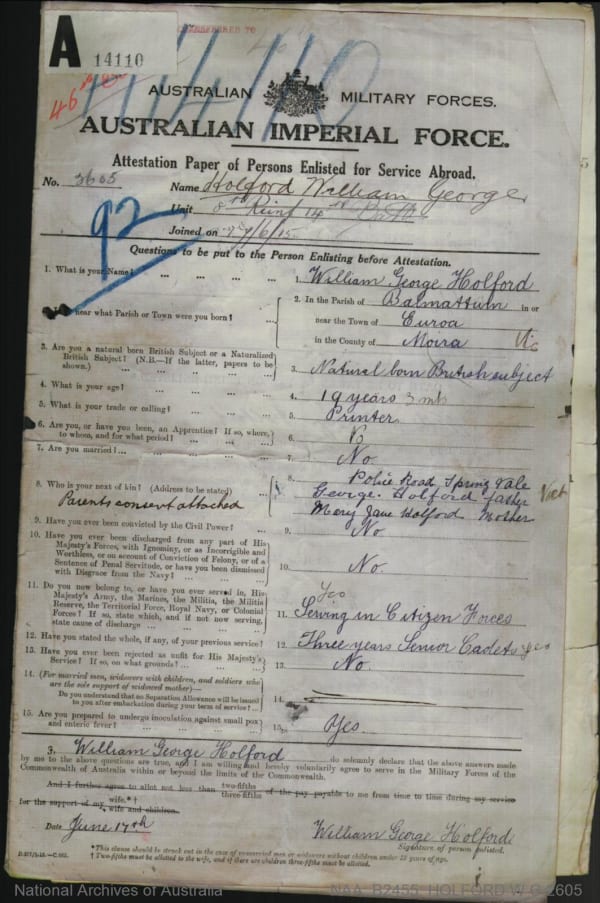 TRANSFERRED TO
A 14110
14110
AUSTRALIAN MILITARY FORCES.
AUSTRALIAN IMPERIAL FORCE.
Attestation Paper of Persons Enlisted for Service Abroad.
No. 3605 Name Holford William George
Unit 8th Reinf 14th Batt
Joined on 17/6/15
92
Questions to be put to the Person Enlisting before Attestation.
1. What is your Name? ... ... ... ... 1. William George Holford
2. In the Parish of Balmattum in or
near what Parish or Town were you born? ... near the Town of Euroa
in the County of Moira Vic
3. Are you a natural born British Subject or a Naturalized
British Subject? (N.B.—If the latter, papers to be
shown.) ... ... ... 3. Natural born British subject
4. What is your age? ... ... ... ... 4. 19 years 3 mts
5. What is your trade or calling? ... ... ... 5. Printer
6. Are you, or have you been, an Apprentice? If so, where,
to whom, and for what period? ... ... ... 6. No
7. Are you married? ... ... ... ... 7. No
8. Who is your next of kin? (Address to be stated) 8. Police Road Spring Vale Vict
George Holford father
Parents consent attached Mery Jane Holford Mother
9. Have you ever been convicted by the Civil Power? ... 9. No
10. Have you ever been discharged from any part of His
Majesty's Forces, with Ignominy, or as Incorrigible and
Worthless, or on account of Conviction of Felony, or of a
Sentence of Penal Servitude, or have you been dismissed
with Disgrace from the Navy? ... ... ... 10. No.
11. Do you now belong to, or have you ever served in, His
Majesty's Army, the Marines, the Militia, the Militia
Reserve, the Territorial Force, Royal Navy, or Colonial
Forces? If so, state which, and if not now serving,
state cause of discharge ... ... ... 11. Yes Serving in Citizen Forces
12. Have you stated the whole, if any, of your previous service? 12. Three years Senior Cadets yes
13. Have you ever been rejected as unfit for His Majesty's
Service? If so, on what grounds? ... ... 13. No.
14. (For married men, widowers with children, and soldiers who
are the sole support of widowed mother)—
Do you understand that no Separation Allowance will be issued
to you after embarkation during your term of service? ... 14.
15. Are you prepared to undergo inoculation against small pox
and enteric fever? ... ... ... 15. Yes
I, William George Holford do solemnly declare that the above answers made
by me to the above questions are true, and I am willing and hereby voluntarily agree to serve in the Military Forces of the
Commonwealth of Australia within or beyond the limits of the Commonwealth.
And I further agree to allot not less than two-fifths three-fifths of the pay payable to me from time to time during my service
for the support of my wife.*† wife and children.
Date June 17th William George Holford
Signature of person enlisted.
* This clause should be struck out in the case of unmarried men or widowers without children under 18 years of age.
† Two-fifths must be allotted to the wife, and if there are children three-fifths must be allotted.
National Archives of Australia NAA: B2455, HOLFORD W G 2605